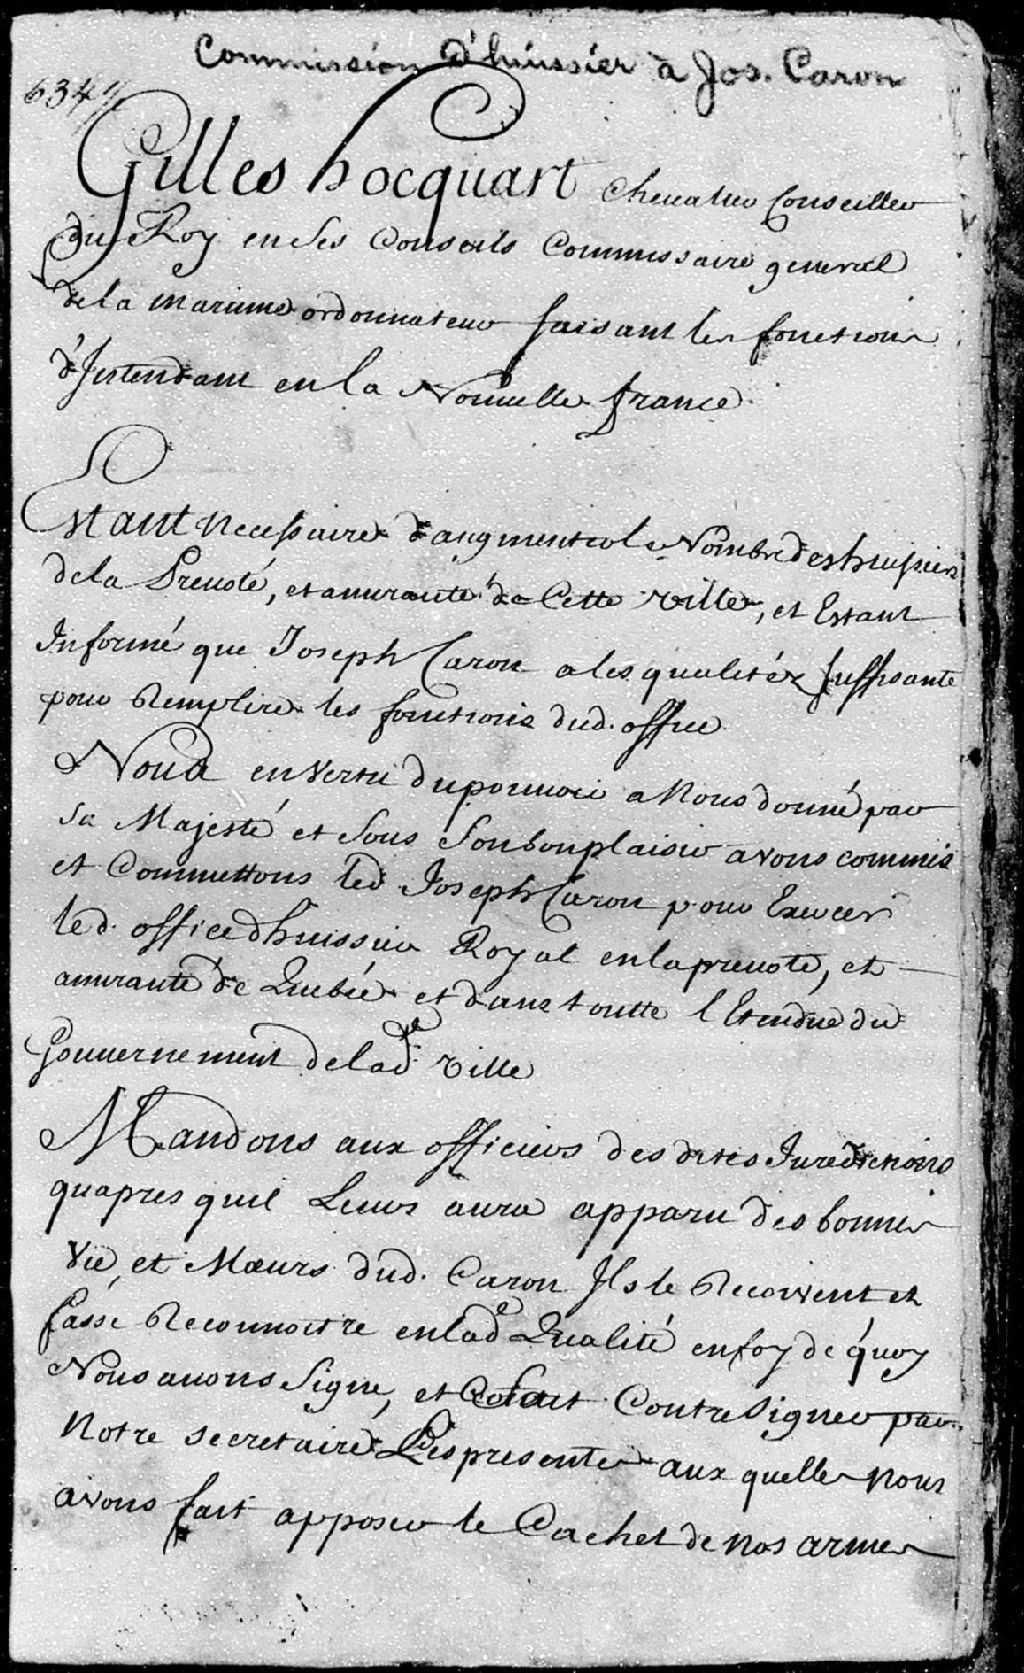 Commission d'huissier à Jos. Caron
Gilles hocquart Cheualier Conseiller
du Roy en ses Conseils Commissaire general
de la marinne ordonnateur faisant les fonctions
d'Jntendant en la Nouuelle france
Estant necessaire daugmenter le Nombre des huissiers
de la Preuoté, et amirauté de Cette ville, et Estant
Informé que Joseph Caron a les qualités suffisante
pour Remplire les fonctions dud. office
Nous en vertu du pouuoir a Nous donné par
sa Majesté et sous son bon plaisir avons commis
et Commettons led Joseph Caron pour Exercer
led. office dhuissier Royal en la preuoté, et
amirauté de Quebec et dans toutte l'Etendue du
Gouuernement de lade ville
Mandons aux officiers des dites Juredictions
quapres quil Leurs aura apparu des bonnes
vie, et Mœurs dud. Caron Jls le Recoivent et
fasse Reconnoitre en lade Qualité en foy de quoy
Nous auons signe, et fait Contresigner par
Notre secretaire Les presentes aux quelles nous
avons fait apposer le Cachet de nos armes